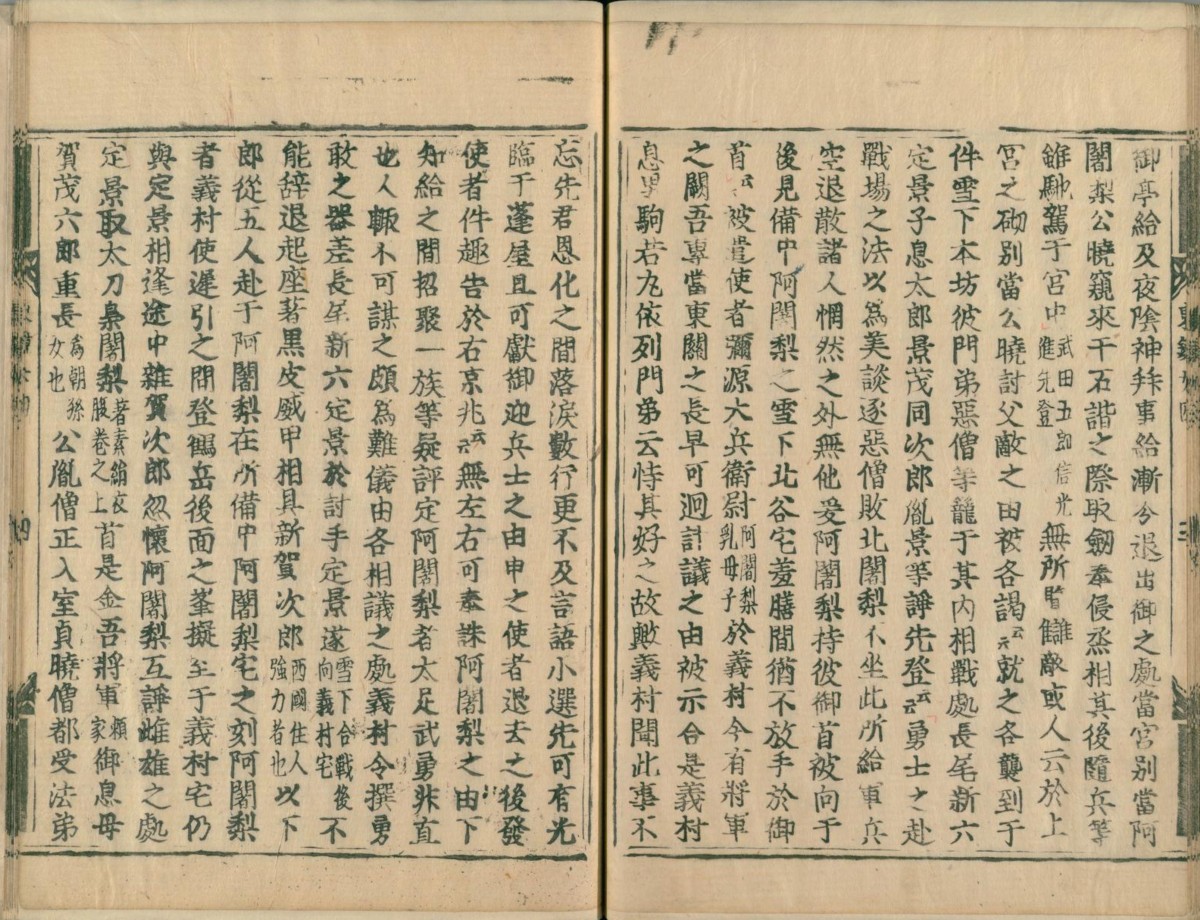 御亭給及夜陰神拜事給漸令退出御之處當宮別當阿
闍梨公曉窺來于石諧之際取劔奉侵烝相其後隨兵等
雖馳駕于宮中武田五郎信光進先登無所覓讎敵或人云於上
宮之砌別當公曉討父敵之由被各謁云云就之各襲到于
件雪下本坊彼門弟惡僧等籠于其內相戰處長尾新六
定景子息太郎景茂同次郎胤景等諍先登云云勇士之赴
戰場之法以爲美談遂惡僧敗北闍梨不坐此所給軍兵
空退散諸人惘然之外無他爰阿闍梨持彼御首被向于
後見備中阿闍梨之雪下北谷宅羞膳間猶不放手於御
首云云被遣使者彌源大兵衛尉阿闍梨乳母子於義村今有將軍
之闕吾專當東關之長早可迴計議之由被示合是義村
息男駒若丸依列門弟云恃其好之故歟義村聞此事不
忘先君恩化之間落淚數行更不及言語小選先可有光
臨于蓬屋且可獻御迎兵士之由申之使者退去之後發
使者件趣告於右京兆云云無左右可奉誅阿闍梨之由下
知給之間招聚一族等疑評定阿闍梨者太足武勇非直
也人輙不可謀之頗爲難儀由各相議之處義村令撰勇
敢之器差長尾新六定景於討手定景遂雪下合戰後向義村宅不
能辞退起座著黑皮威甲相具新賀次郎西國住人強力者也以下
郎從五人赴于阿闍梨在所備中阿闍梨宅之刻阿闍梨
者義村使遲引之間登鶴岳後面之峯擬至于義村宅仍
與定景相逢途中雜賀次郎忽懷阿闍梨互諍雌雄之處
定景取太刀梟闍梨著素絹衣腹卷之上首是金吾將軍賴家御息母
賀茂六郎重長女也爲朝孫公胤僧正入室貞曉僧都受法弟